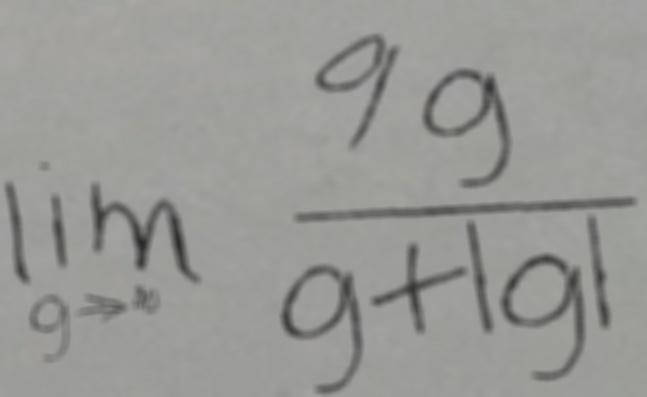 \lim_{g \to \infty} \frac{9g}{g+|g|}